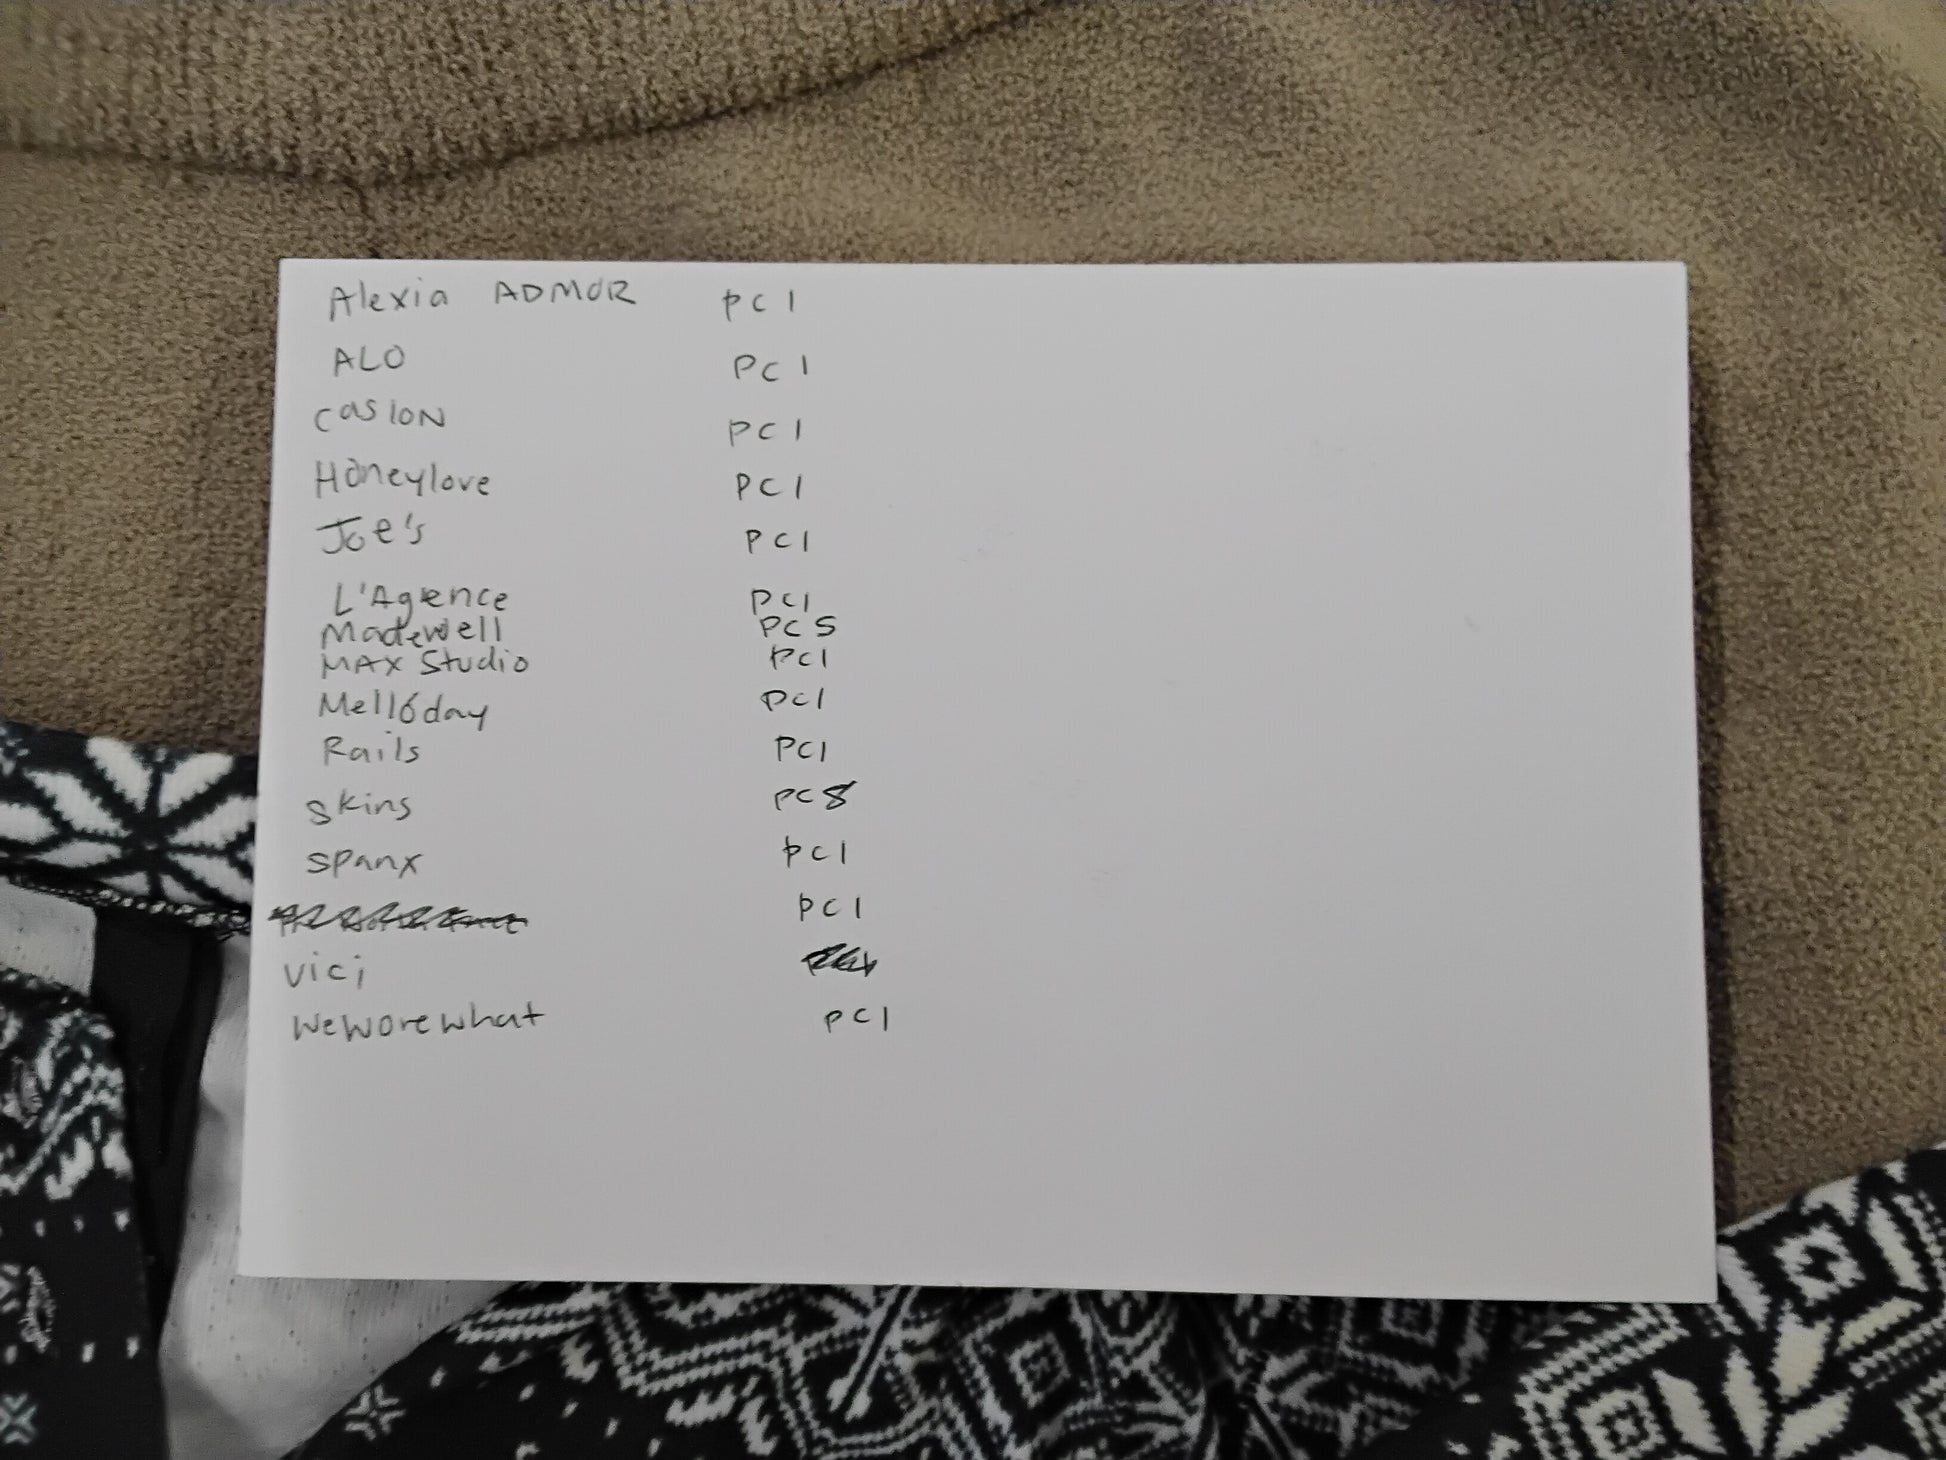 Alexia ADMOR PC 1
ALO PC 1
CASLON PC 1
Honeylove PC 1
Joe's PC 1
L'Agence PC1
Madewell PC 5
MAX Studio PC1
Mell6day PC1
Rails PC1
Skins PC 8
Spanx PC 1
PC 1
Vici
WeWorewhat PC 1